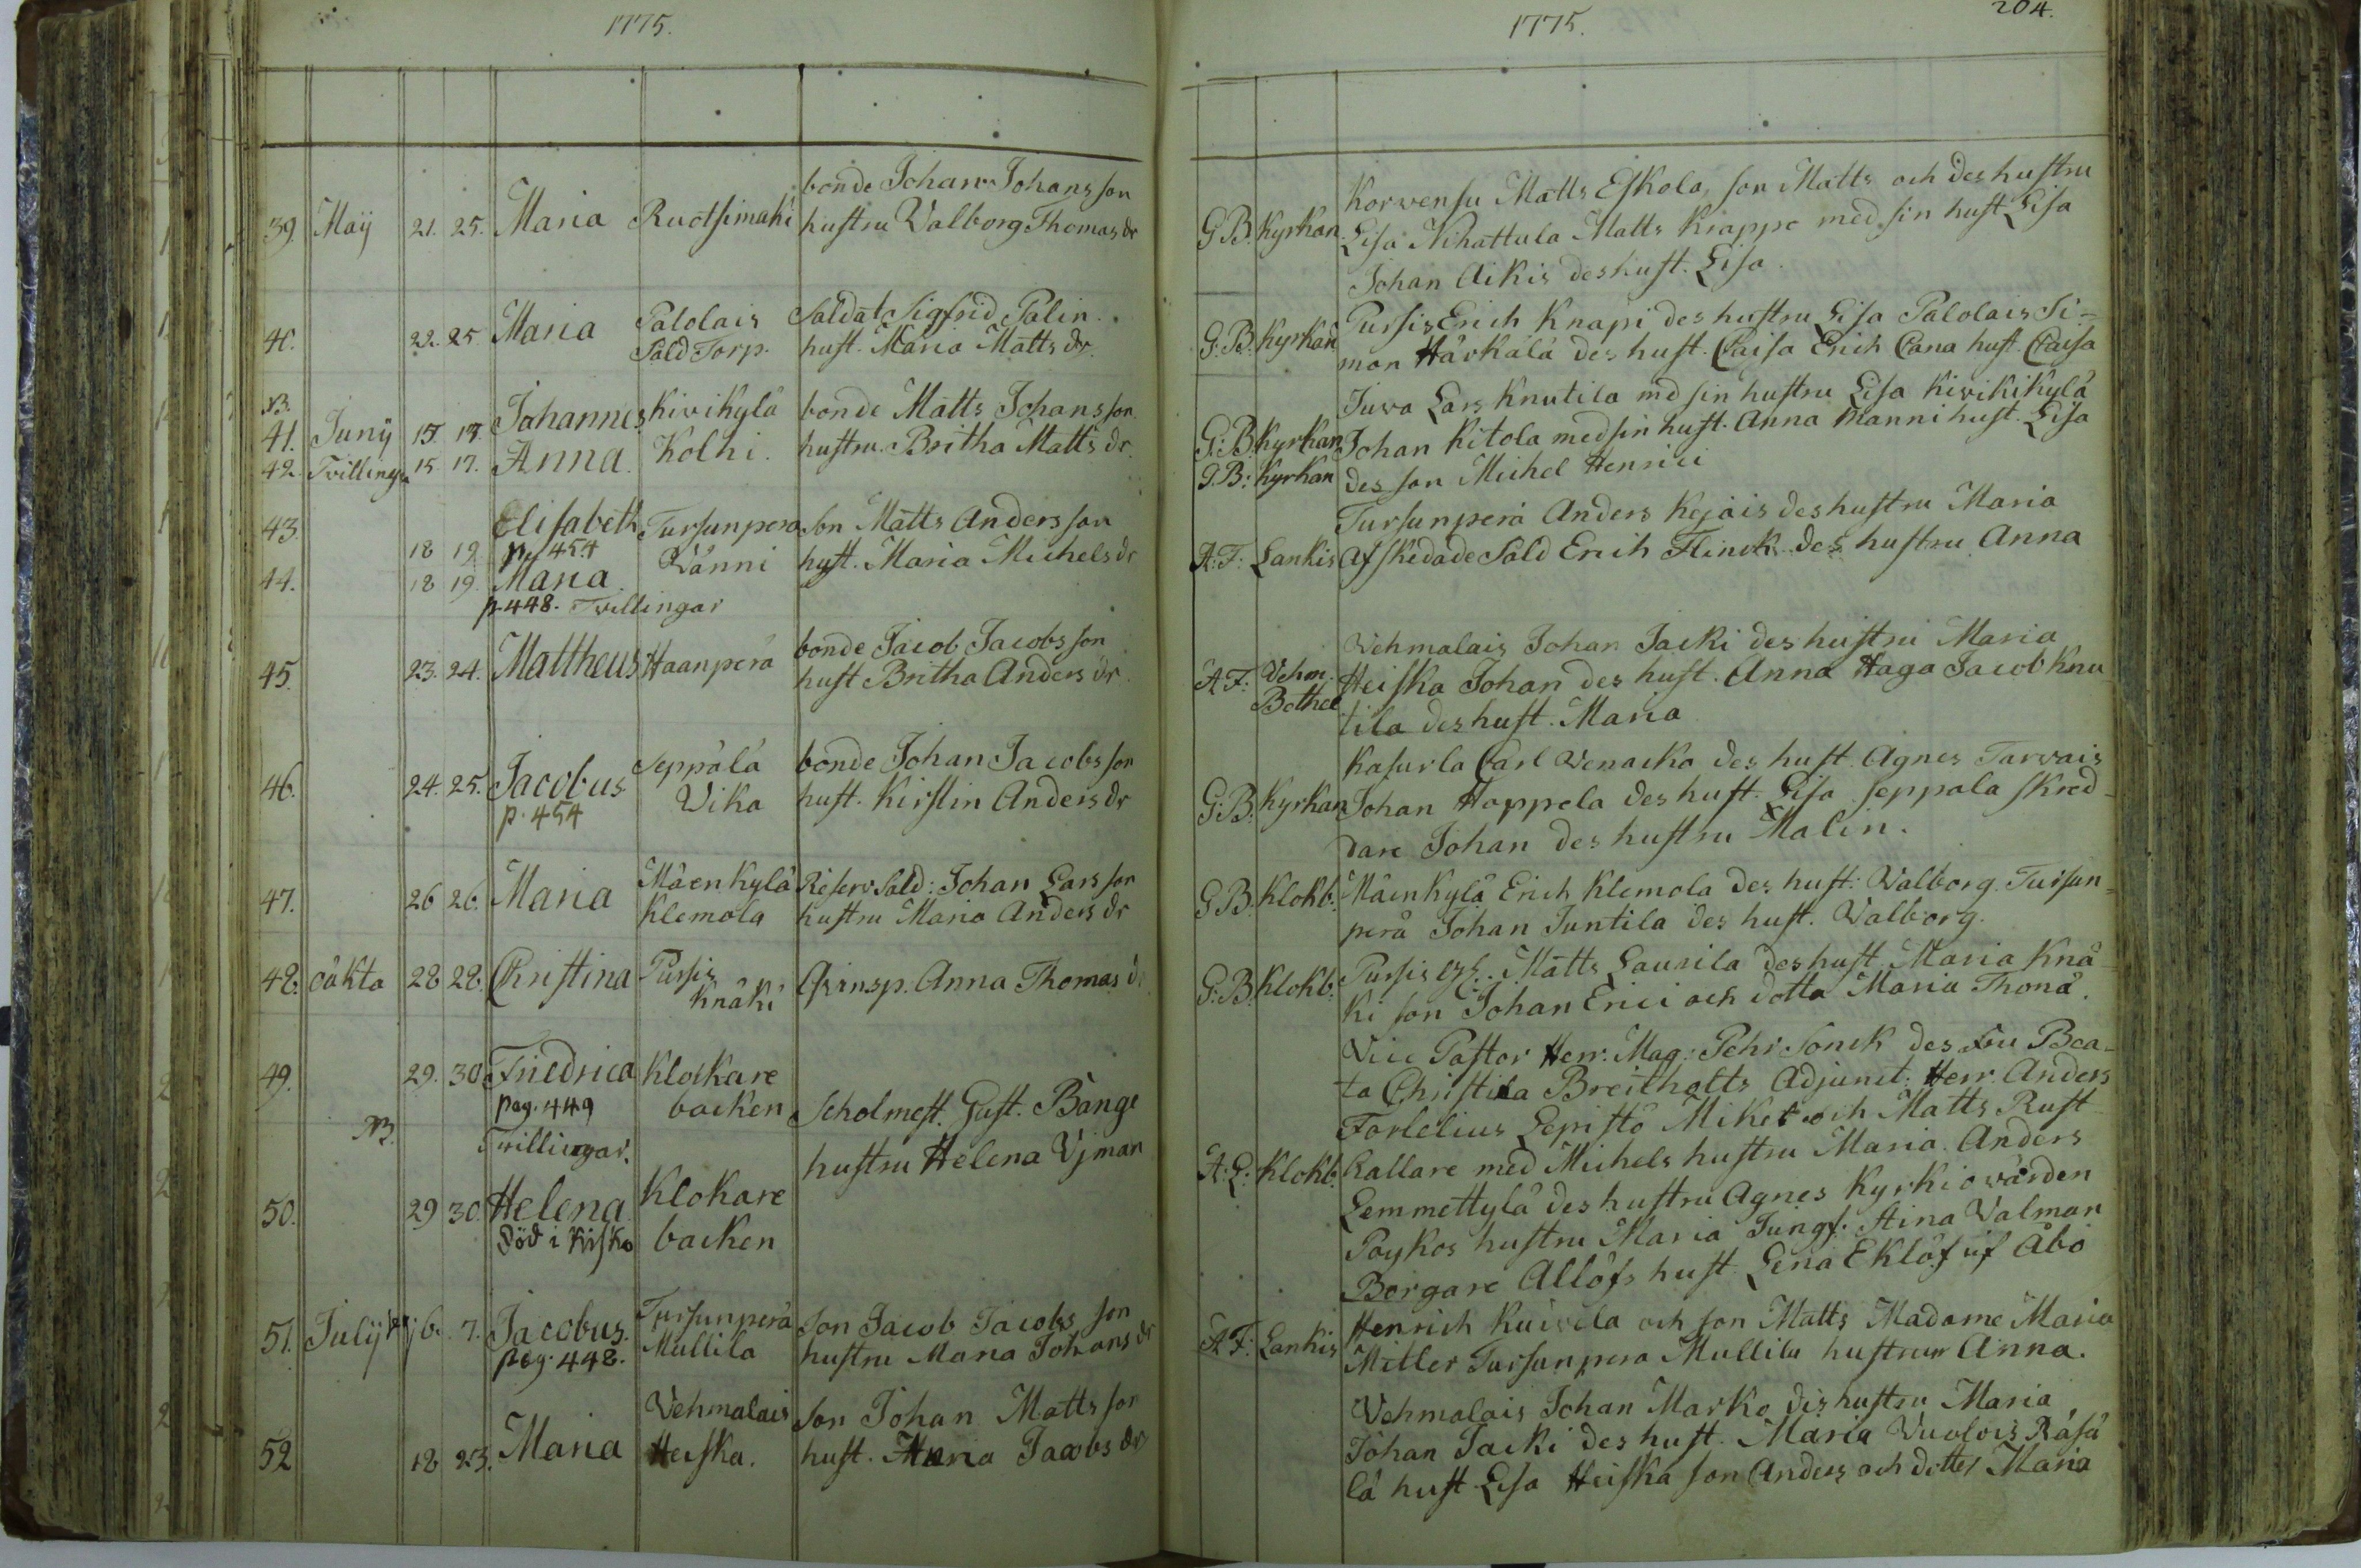 1775.
39. Maÿ 21. 25. Maria Ruotsimäki bonde Johan Johans son
hustru Valborg Thomas dr
40. 22. 25 Maria Palolais Sold Torp. Soldat Sigfrid Palin.
hust. Maria Matts dr.
NB.
41. Junÿ 15. 17. Johannes Kivikylä bonde Matts Johans son
42. Tvillingar 15 17. Anna. Kolhi. hustru Britha Matts dr.
43. 18 19. Elisabeth Tursunperä son Matts Anders son
pag 454 Vänni hust. Maria Michels dr
44. 18 19. Maria
p. 448. Tvillingar
45. 23. 24. Mattheus Haanperä bonde Jacob Jacobs son
hust Britha Anders dr
46. 24. 25. Jacobus Seppälä bonde Johan Jacobs son
p. 454 Vika hust. Kirstin Anders dr
47. 26 26. Maria Mäenkylä Reserv Sold: Johan Lars son
Klemola hustru Maria Anders dr
48. oäkta 28 28. Christina Pursis Qvinsp. Anna Thomas dr
Knäki
49. 29. 30 Friedrica Klockare
pag. 449 backen Scholmest. Gust. Bånge
NB. Tvillingar. hustru Helena Ujman
50. 29 30. Helena Klokare
död i Kisko backen
51. Julÿ 6. 7. Jacobus. Tursunperä son Jacob Jacobs son
pag. 448. Mullila hustru Maria Johans dr
52 18 23. Maria Vehmalais son Johan Matts son
Heiska. hust. Maria Jacobs dr
1775. 204.
Korwensu Matts Eskola, son Matts och des hustru
G.B. Kyrkan. Lisa Nihattula Matts Krappe med sin hust Lisa
Johan Aikis des hust. Lisa.
Pursis Erich Knapi des hustru Lisa Palolais Si-
G:B: Kyrkan mon Härkälä des hust. Caisa Erich Cana hust. Caisa
Juva Lars Knutila md sin hustru Lisa Kivikikylä
G:B: Kyrkan Johan Kitola med sin hust. Anna Manni hust. Lisa
G.B: Kyrkan des son Michel Henrici
Tursunperä Anders Kejais des hustru Maria
A:F: Lankis Afskedade Sold Erich Flinck des hustru Anna
Vehmalais Johan Jacki des hustru Maria
A F: Vehm. Heiska Johan des hust. Anna Haga Jacob Knu-
Bothel tila des hust. Maria
Kasurla Carl Venacka des hust. Agnes Tarvais
G:B: Kyrkan Johan Hoppela des hust. Lisa Seppala skred-
dare Johan des hustru Malin.
G B. Klokb. Mäenkylä Erich Klemola des hust: Valborg. Tursun-
perä Johan Juntila des hust. Valborg.
G:B. Klokb. Pursis Matts Laurila des hust Maria Knä-
ki son Johan Erici och dotta Maria Thomä.
Vice Pastor Herr. Mag: Pehr Sonck des Fru Bea-
ta Christina Breitholtz Adjunct. Herr. Anders
Forlelius Lepistö Mikel och Matts Rust
A:L: Klokb. Kallare med Michels hustru Maria. Anders
Lemmettylä des hustru Agnes Kyrkiovärden
Poykos hustru Maria Jungf. Stina Valman
Borgare Allöfs hust Lena Eklöf uf Åbo
A F: Lankis Henrich Kuivola och son Matts Madame Maria
Miller Tursunpera Mullila hustrun Anna.
Vehmalais Johan Marko des hustru Maria,
Johan Jacki des hust. Maria Vuolois Räsä
lä hust Lisa Heiska son Anders och dotter Maria